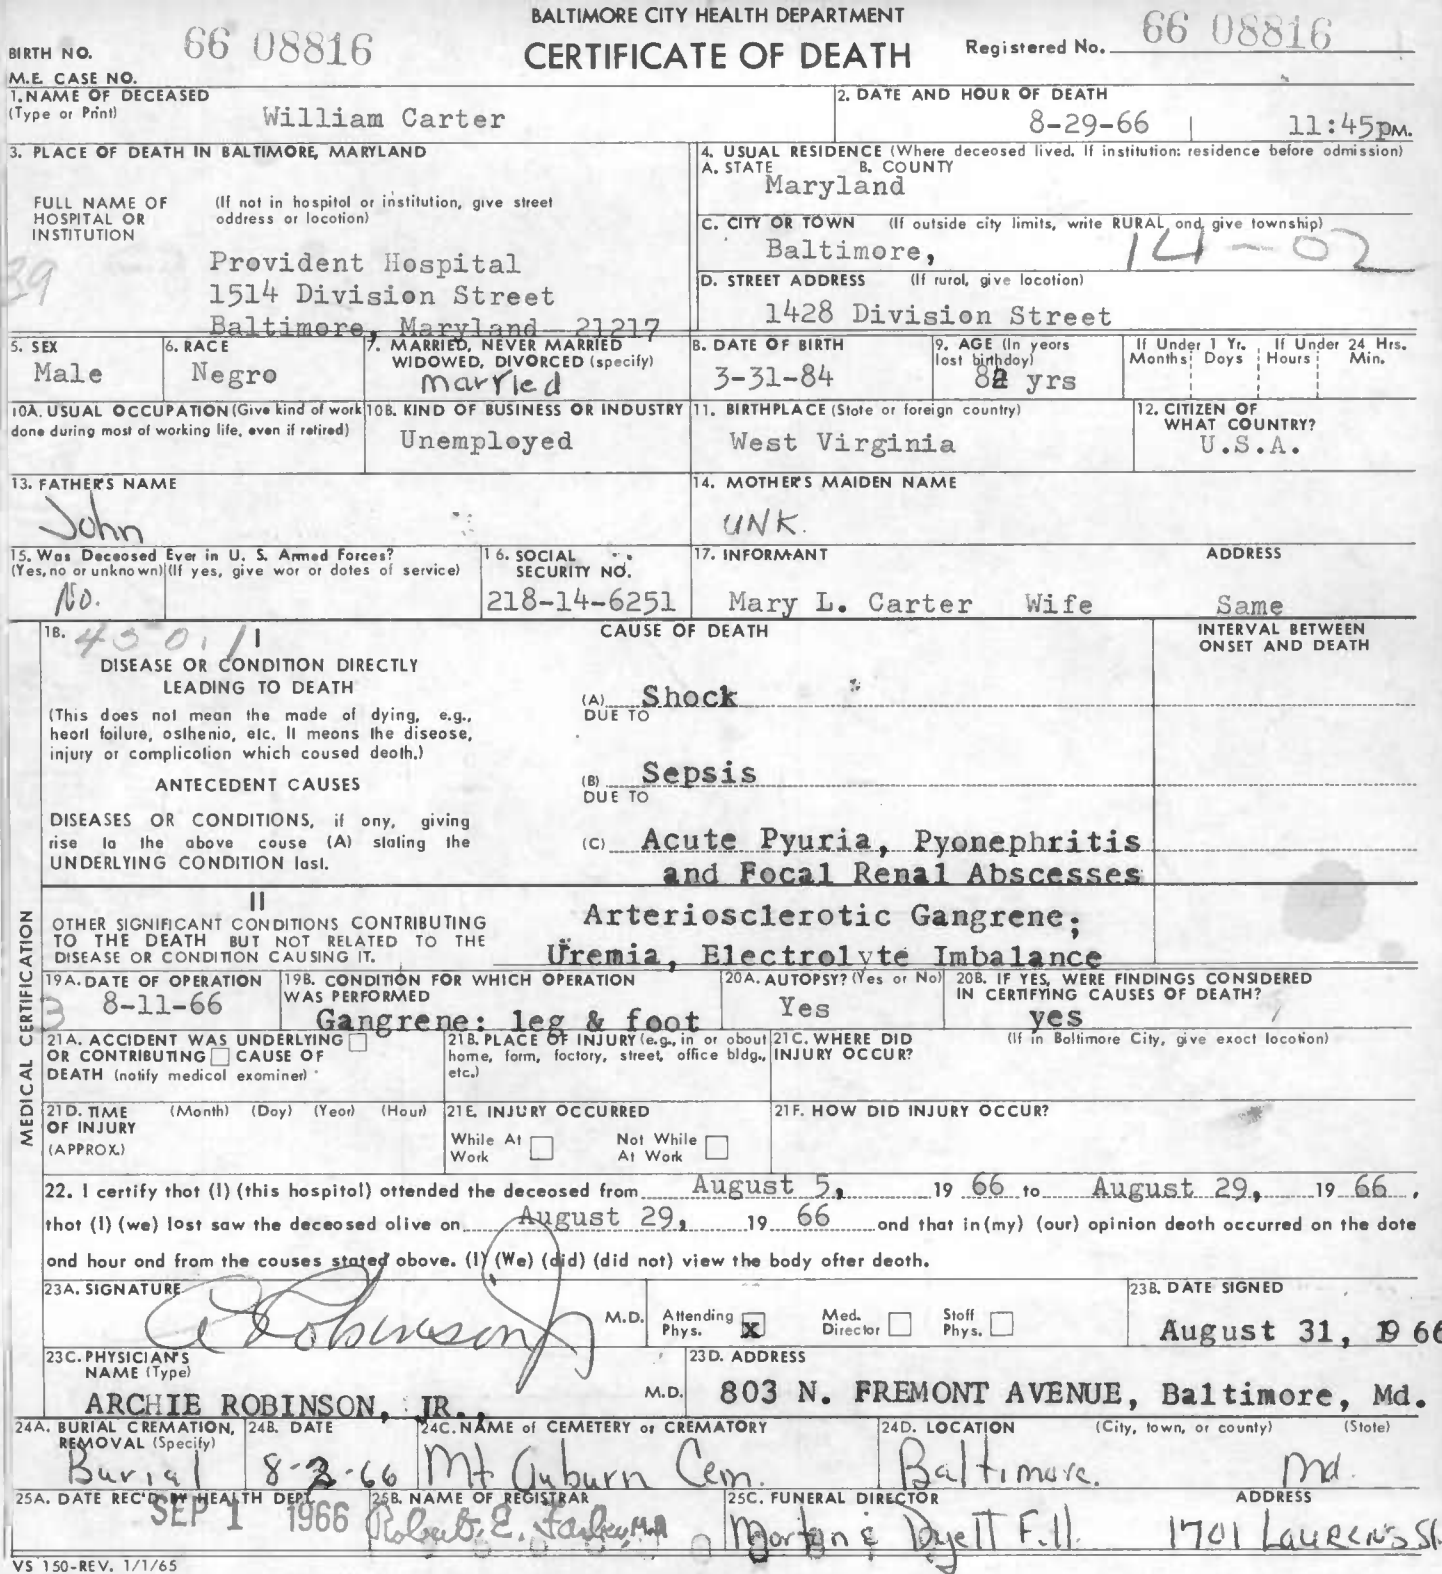 BALTIMORE CITY HEALTH DEPARTMENT
BIRTH NO. 66 08816 CERTIFICATE OF DEATH Registered No. 66 08816
M.E. CASE NO.
1. NAME OF DECEASED
(Type or Print) William Carter
2. DATE AND HOUR OF DEATH
8-29-66 11:45pM.
3. PLACE OF DEATH IN BALTIMORE, MARYLAND
FULL NAME OF HOSPITAL OR INSTITUTION
(If not in hospital or institution, give street
address or location)
39
Provident Hospital
1514 Division Street
Baltimore, Maryland 21217
4. USUAL RESIDENCE (Where deceased lived. If institution: residence before admission)
A. STATE B. COUNTY
Maryland
C. CITY OR TOWN (If outside city limits, write RURAL and give township)
Baltimore, 14-02
D. STREET ADDRESS (If rural, give location)
1428 Division Street
5. SEX
Male
6. RACE
Negro
7. MARRIED, NEVER MARRIED
WIDOWED, DIVORCED (specify)
married
8. DATE OF BIRTH
3-31-84
9. AGE (In years
last birthday)
82 yrs
If Under 1 Yr.
Months Days
If Under 24 Hrs.
Hours Min.
10A. USUAL OCCUPATION (Give kind of work
done during most of working life, even if retired)
10B. KIND OF BUSINESS OR INDUSTRY
Unemployed
11. BIRTHPLACE (State or foreign country)
West Virginia
12. CITIZEN OF
WHAT COUNTRY?
U.S.A.
13. FATHER'S NAME
John
14. MOTHER'S MAIDEN NAME
UNK.
15. Was Deceased Ever in U. S. Armed Forces?
(Yes, no or unknown) (If yes, give war or dates of service)
No.
16. SOCIAL
SECURITY NO.
218-14-6251
17. INFORMANT ADDRESS
Mary L. Carter Wife Same
MEDICAL CERTIFICATION
18. 450.1 I
CAUSE OF DEATH
INTERVAL BETWEEN
ONSET AND DEATH
DISEASE OR CONDITION DIRECTLY
LEADING TO DEATH
(This does not mean the mode of dying, e.g.,
heart failure, asthenia, etc. It means the disease,
injury or complication which caused death.)
ANTECEDENT CAUSES
DISEASES OR CONDITIONS, if any, giving
rise to the above cause (A) stating the
UNDERLYING CONDITION last.
(A) Shock
DUE TO
(B) Sepsis
DUE TO
(C) Acute Pyuria, Pyonephritis
and Focal Renal Abscesses
II
OTHER SIGNIFICANT CONDITIONS CONTRIBUTING
TO THE DEATH BUT NOT RELATED TO THE
DISEASE OR CONDITION CAUSING IT.
Arteriosclerotic Gangrene;
Uremia, Electrolyte Imbalance
19A. DATE OF OPERATION
8-11-66
3
19B. CONDITION FOR WHICH OPERATION
WAS PERFORMED
Gangrene: leg & foot
20A. AUTOPSY? (Yes or No)
Yes
20B. IF YES, WERE FINDINGS CONSIDERED
IN CERTIFYING CAUSES OF DEATH?
yes
21A. ACCIDENT WAS UNDERLYING
OR CONTRIBUTING CAUSE OF
DEATH (notify medical examiner)
21B. PLACE OF INJURY (e.g., in or about
home, farm, factory, street, office bldg.,
etc.)
21C. WHERE DID (If in Baltimore City, give exact location)
INJURY OCCUR?
21D. TIME (Month) (Day) (Year) (Hour)
OF INJURY
(APPROX.)
21E. INJURY OCCURRED
While At Work
Not While At Work
21F. HOW DID INJURY OCCUR?
22. I certify that (I) (this hospital) attended the deceased from August 5, 19 66 to August 29, 19 66,
that (I) (we) last saw the deceased alive on August 29, 19 66 and that in (my) (our) opinion death occurred on the date
and hour and from the causes stated above. (I) (We) (did) (did not) view the body after death.
23A. SIGNATURE
A Robinson Jr M.D.
Attending Phys. X
Med. Director
Staff Phys.
23B. DATE SIGNED
August 31, 1966
23C. PHYSICIAN'S
NAME (Type)
ARCHIE ROBINSON, JR., M.D.
23D. ADDRESS
803 N. FREMONT AVENUE, Baltimore, Md.
24A. BURIAL CREMATION,
REMOVAL (Specify)
Burial
24B. DATE
8-2-66
24C. NAME of CEMETERY or CREMATORY
Mt Auburn Cem.
24D. LOCATION (City, town, or county) (State)
Baltimore. Md.
25A. DATE REC'D BY HEALTH DEPT.
SEP 1 1966
25B. NAME OF REGISTRAR
Robert E. Farber, M.D.
25C. FUNERAL DIRECTOR ADDRESS
Morton & Dyett F.H. 1701 Laurens St.
VS 150-REV. 1/1/65